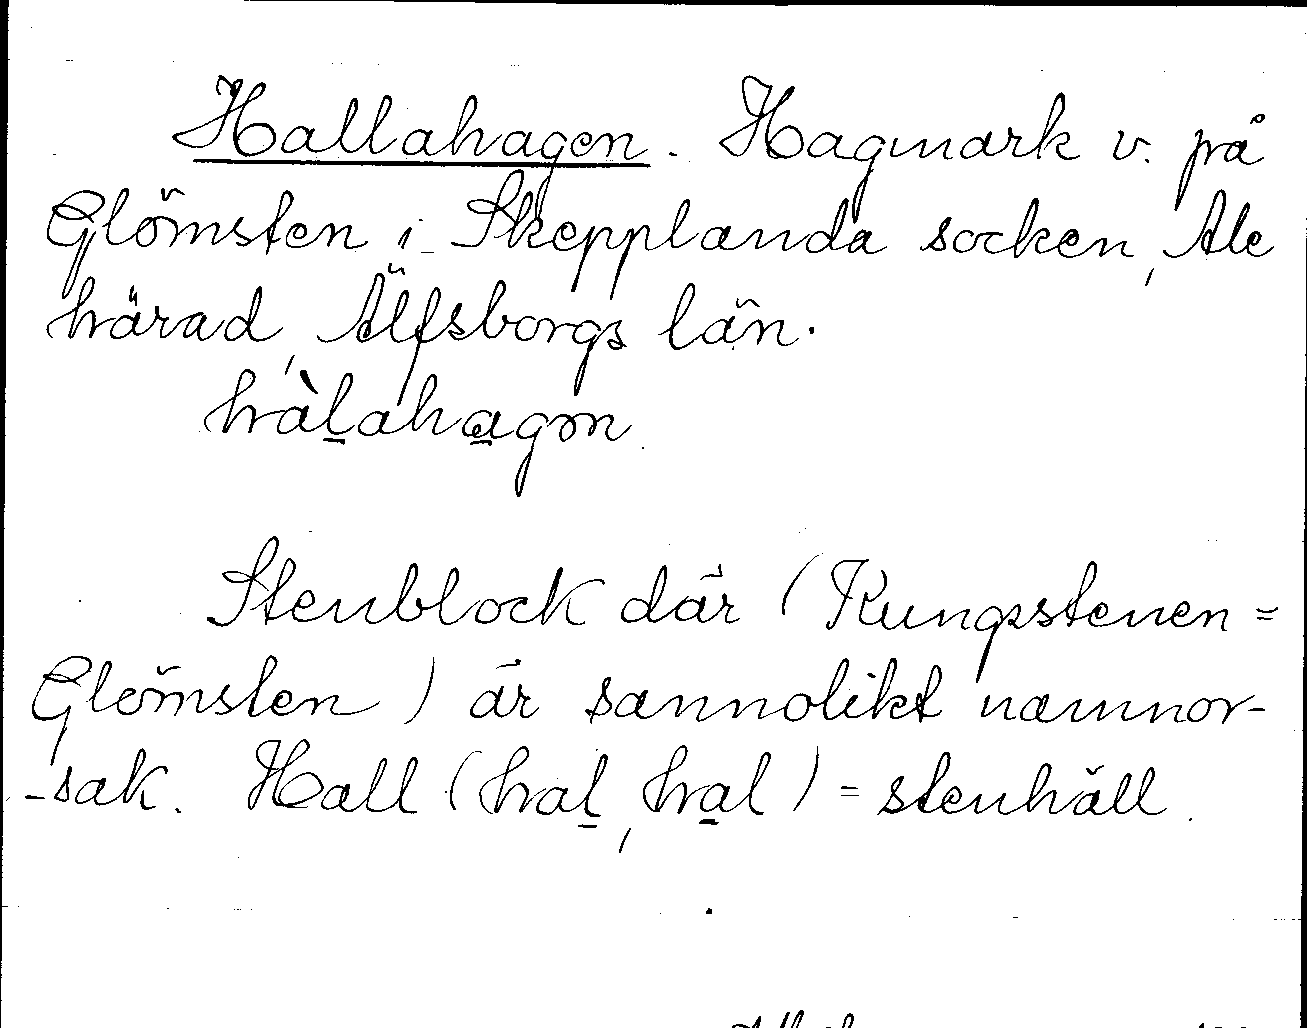 Hallahagen. Hagmark v. på
Glömsten i Skepplanda socken, Ale
härad, Älfsborgs län.
hàl̲aha̲gən
Stenblock där (Kungsstenen =
Glömsten) är sannolikt namnor-
-sak. Hall (hal̲, ha̲l) = stenhäll.